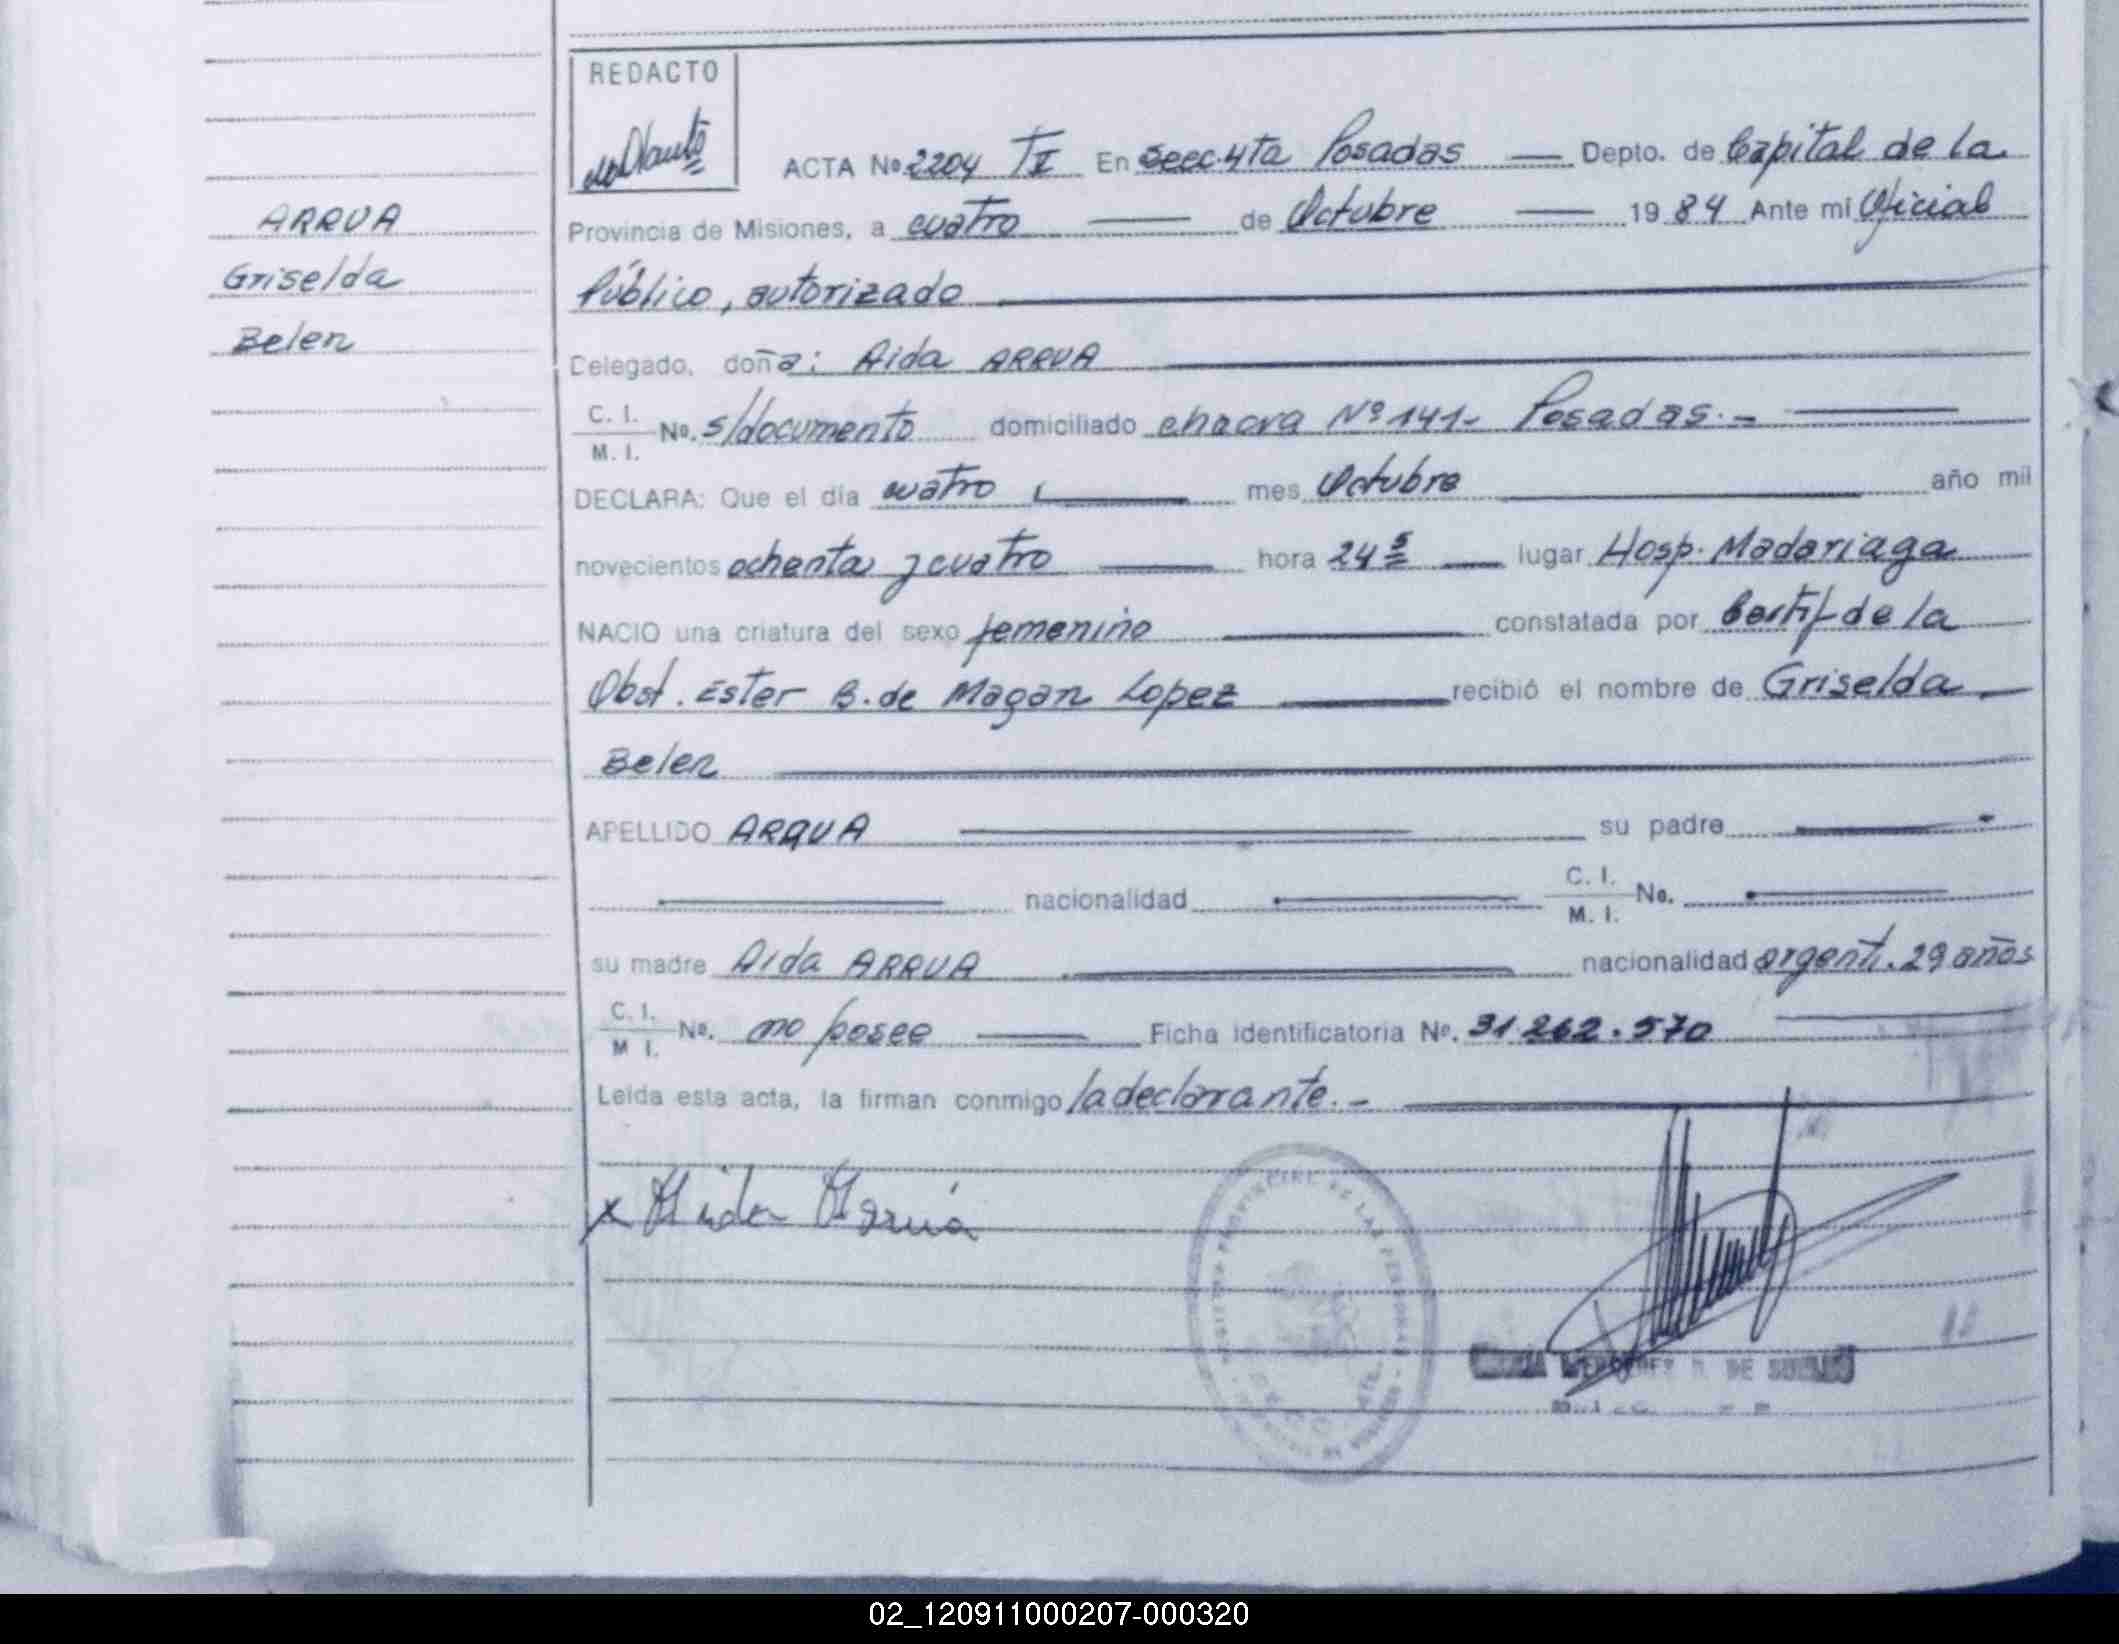 REDACTO
ACTA Nº 2204 TII En Secc. 4ta Posadas — Depto. de Capital de la
ARRUA
Provincia de Misiones, a cuatro — de Octubre — 1984 Ante mi Oficial
Griselda
Público, autorizado
Belen
Delegado, doña: Aida ARRUA
C. I.
M. I.
No. s/documento domiciliado chacra Nº 141- Posadas.-
DECLARA: Que el día cuatro mes Octubre año mil
novecientos ochenta y cuatro — hora 24 lugar Hosp. Madariaga
NACIO una criatura del sexo femenino constatada por Certif de la
Obst. Ester B. de Magan Lopez recibió el nombre de Griselda
Belen
APELLIDO ARRUA su padre
nacionalidad C. I.
M. I. No.
su madre Aida ARRUA nacionalidad argenti. 29 años
C. I.
M I. No. no posee — Ficha identificatoria Nº. 31.262.570
Leída esta acta, la firman conmigo la declarante.-
x Aida Arruá
DE
02_120911000207-000320